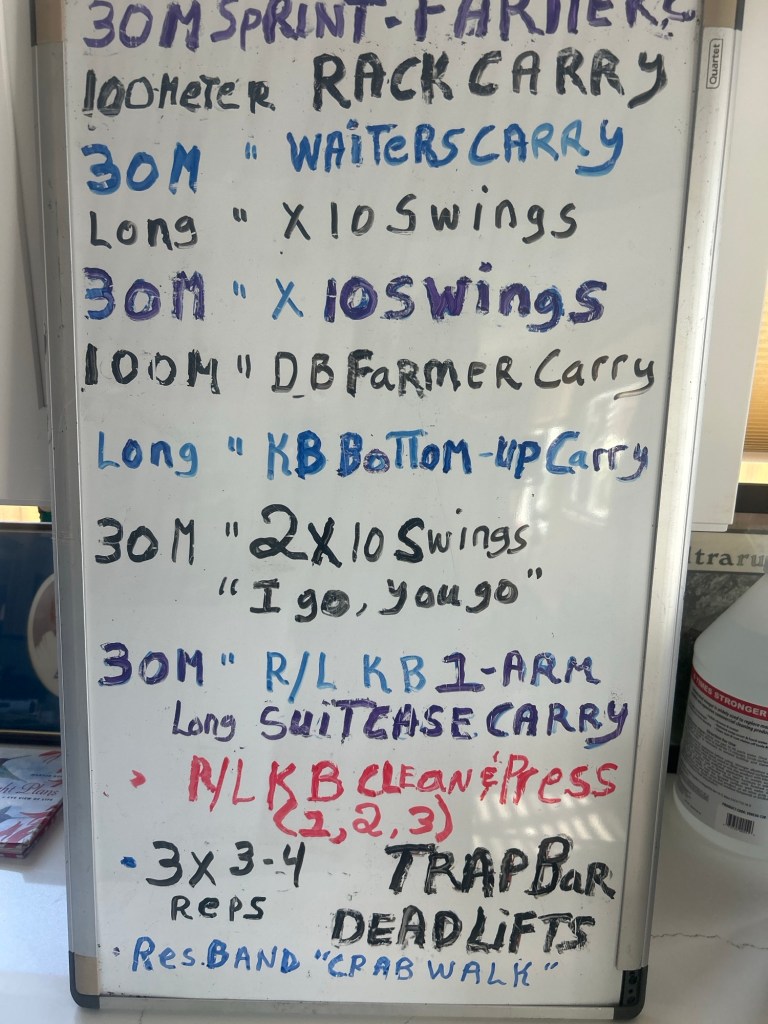 30M SPRINT - FARMERS
Quartet
100METER RACK CARRY
30M " WAITERS CARRY
Long " X 10 Swings
30M " X 10 Swings
100M " DB FARMER Carry
Long " KB BOTTOM-UP Carry
30M " 2X10 Swings
"I go, you go"
30M " R/L KB 1-ARM
Long SUITCASE CARRY
> R/L KB CLEAN & Press
(1, 2, 3)
• 3X 3-4 TRAP BAR
REPS DEADLIFTS
• Res. BAND "CRAB WALK"
STRONGER